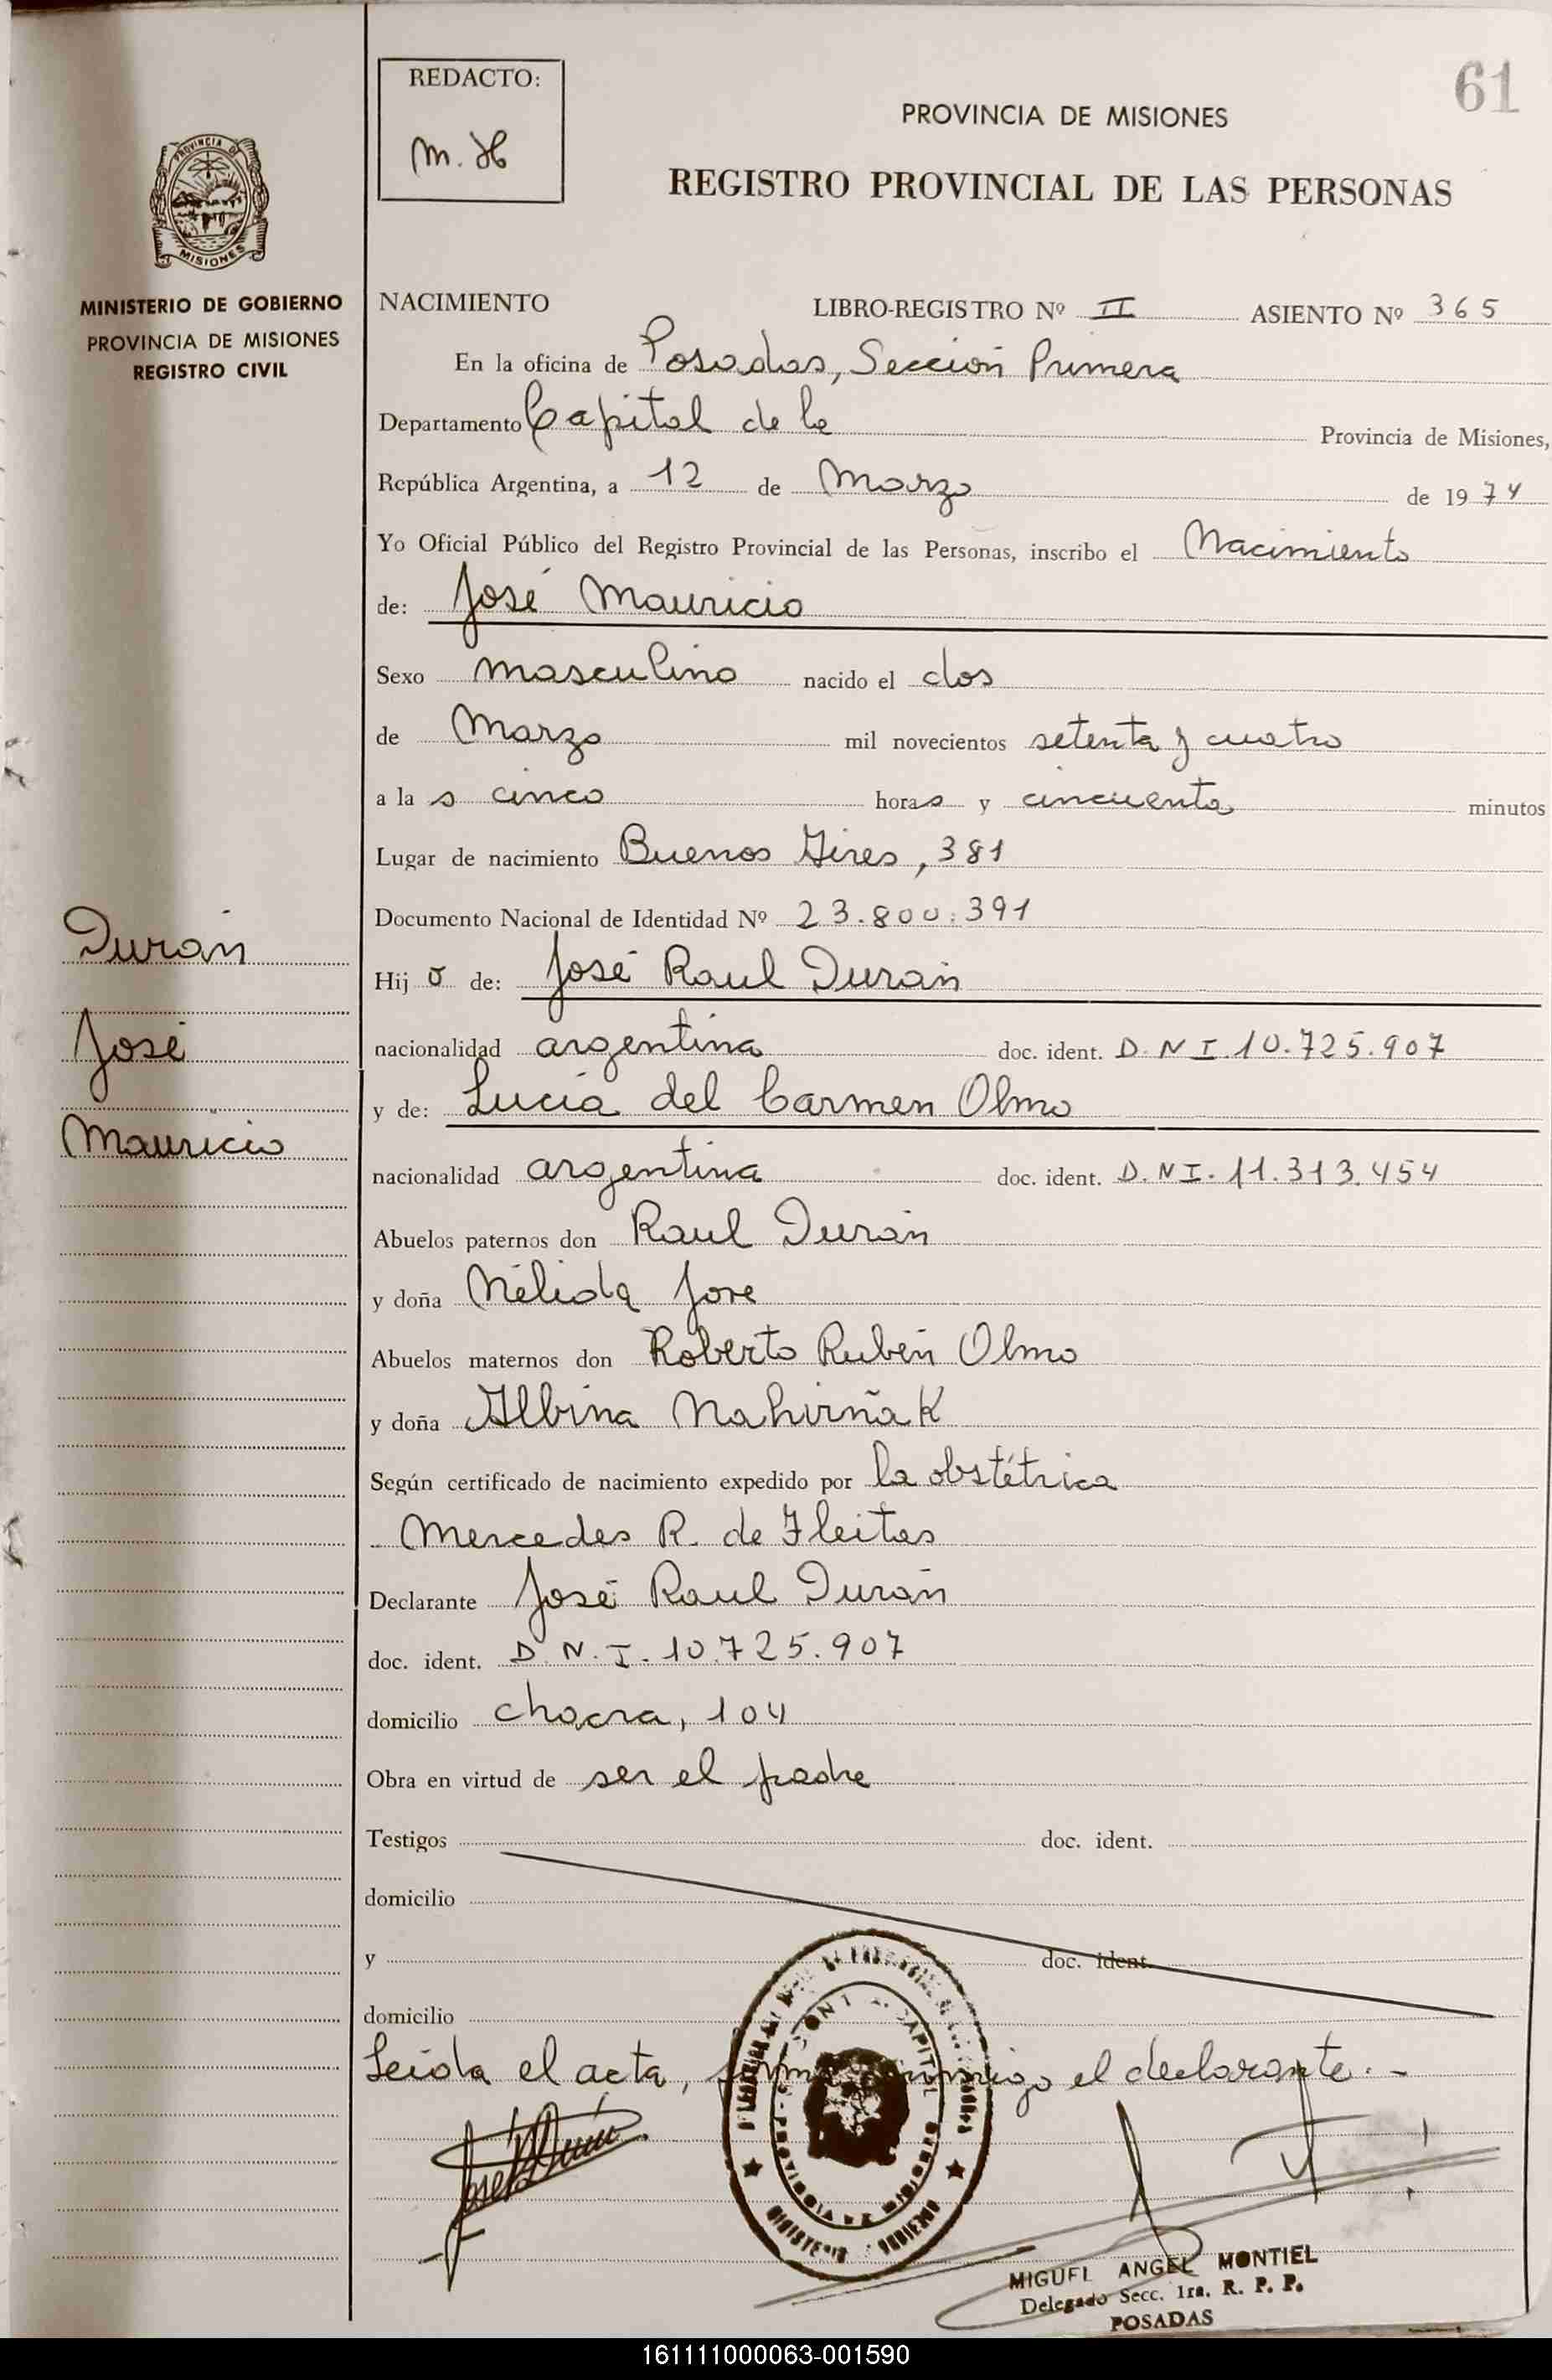 61
REDACTO:
m. H
PROVINCIA DE MISIONES
REGISTRO PROVINCIAL DE LAS PERSONAS
PROVINCIA DE
MISIONES
MINISTERIO DE GOBIERNO
PROVINCIA DE MISIONES
REGISTRO CIVIL
NACIMIENTO LIBRO-REGISTRO Nº II ASIENTO Nº 365
En la oficina de Posadas, Sección Primera
Departamento Capital de la Provincia de Misiones,
República Argentina, a 12 de Marzo de 1974
Yo Oficial Público del Registro Provincial de las Personas, inscribo el Nacimiento
de: José Mauricio
Sexo masculino nacido el dos
de Marzo mil novecientos setenta y cuatro
a las cinco horas y cincuenta minutos
Lugar de nacimiento Buenos Aires, 381
Documento Nacional de Identidad Nº 23.800.391
Durán
José
Mauricio
Hijo de: José Raul Durán
nacionalidad argentina doc. ident. D.N.I. 10.725.907
y de: Lucía del Carmen Olmo
nacionalidad argentina doc. ident. D.N.I. 11.313.454
Abuelos paternos don Raul Durán
y doña Nélida Jore
Abuelos maternos don Roberto Rubén Olmo
y doña Albina Nahirñak
Según certificado de nacimiento expedido por la obstétrica
Mercedes R. de Fleitas
Declarante José Raul Durán
doc. ident. D.N.I. 10.725.907
domicilio chacra, 104
Obra en virtud de ser el padre
Testigos doc. ident.
domicilio
y doc. ident.
domicilio
Leída el acta, firma conmigo el declarante.-
MIGUEL ANGEL MONTIEL
Delegado Secc. 1ra. R. P. P.
POSADAS
161111000063-001590